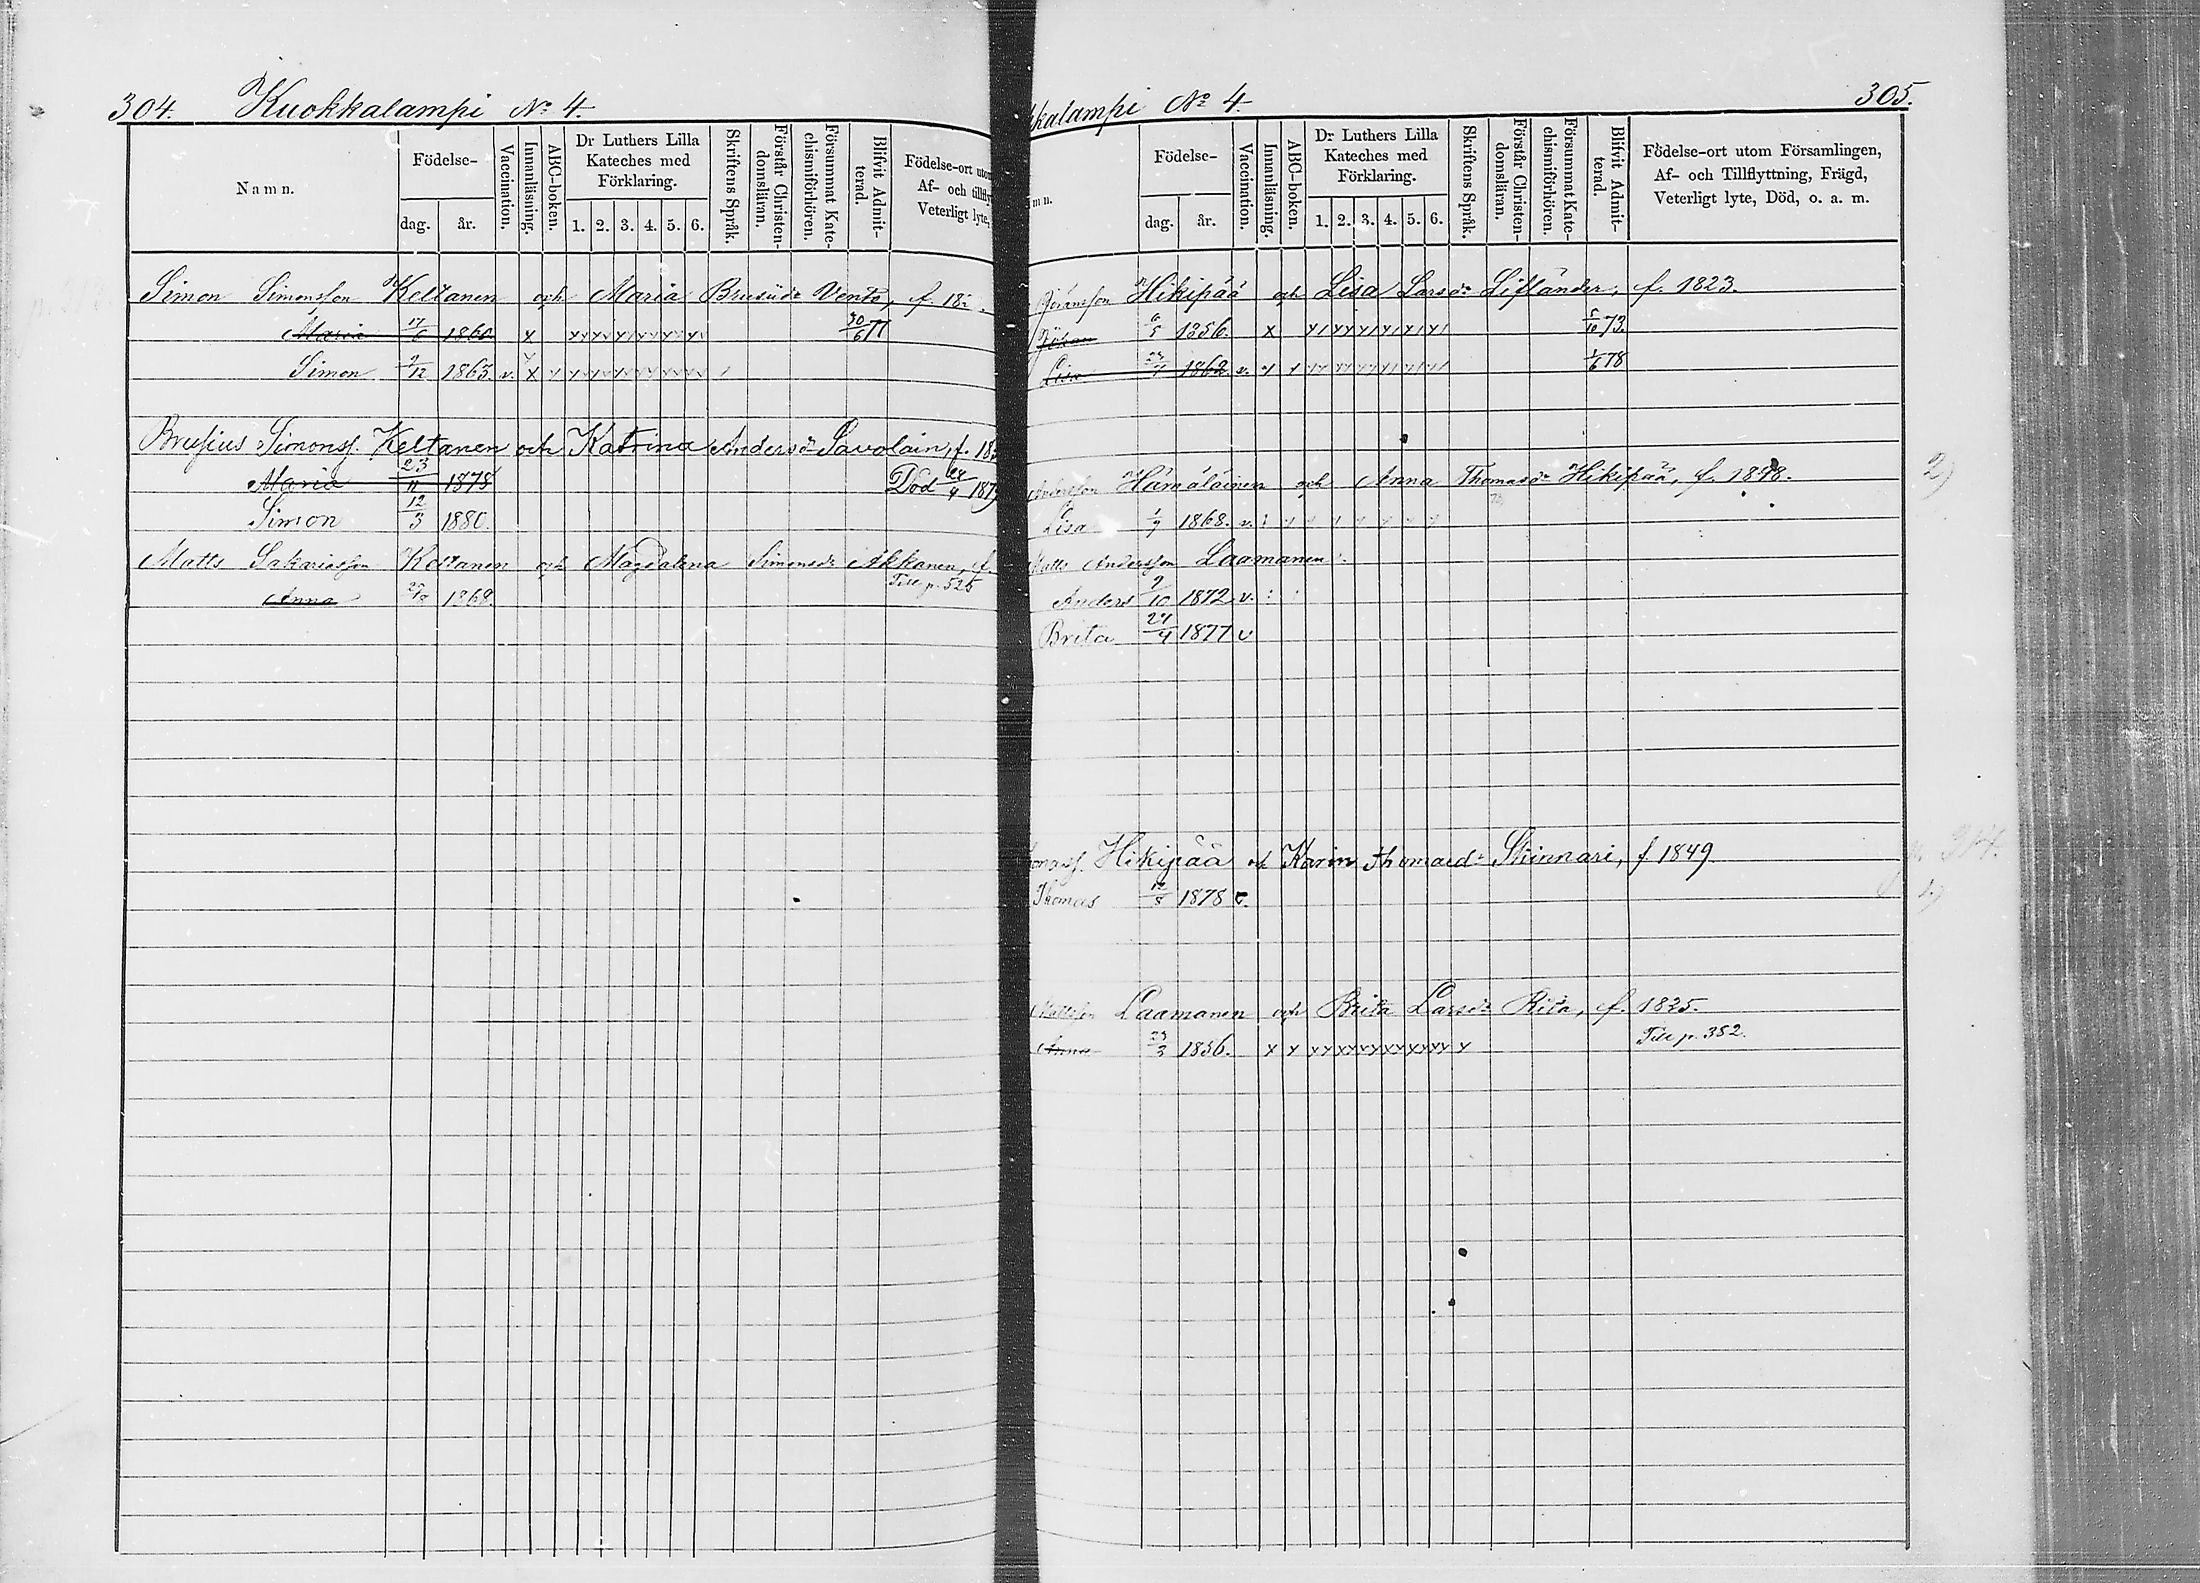 304. Kuokkalampi No 4.
Namn.
Födelse-
dag.
år.
Vaccination.
Innanläsning.
ABC-boken.
Dr Luthers Lilla Kateches med Förklaring.
1. 2. 3. 4. 5. 6.
Skriftens Språk.
Förstår Christendomsläran.
Försummat Katechismiförhören.
Blifvit Admitterad.
Födelse-ort utom
Af- och tillfly
Veterligt lyte,
Simon Simonsson Keltanen och Maria Brusiidr Vento, f. 18
Maria 17/6 1860. x 30/6 77
Simon 9/12 1863. v. x
Brusius Simonss. Keltanen och Katrina Andersdr Savolain, f. 18
Maria 23/11 1878 Död 1879
Simon 12/3 1880.
Matts Sakariasson Keltanen och Magdalena Simonsdr Akkanen, f.
Till p. 525
Anna 1868.
kkalampi No 4. 305.
mn.
Födelse-
dag.
år.
Vaccination.
Innanläsning.
ABC-boken.
Dr Luthers Lilla Kateches med Förklaring.
1. 2. 3. 4. 5. 6.
Skriftens Språk.
Förstår Christendomsläran.
Försummat Katechismförhören.
Blifvit Admitterad.
Födelse-ort utom Församlingen,
Af- och Tillflyttning, Frägd,
Veterligt lyte, Död, o. a. m.
Göransson Hikipää och Lisa Larsdr Lifländer, f. 1823.
Göran 6/5 1856. x 5/10 73.
Lisa 1862. v. 1/6 78
Andersson Hämäläinen och Anna Thomasdr Hikipää, f. 1848.
2)
Lisa 1/9 1868. v.
Matts Andersson Laamanen
Anders 9/10 1872 v.
Brita 24/4 1877 v
Hikipää och Karin Thomasdr Skinnari, f 1849
Thomas 12/8 1878 v.
Mattsson Laamanen och Brita Larsdr Rita, f. 1825.
Till p. 382.
Anna 23/3 1856. x